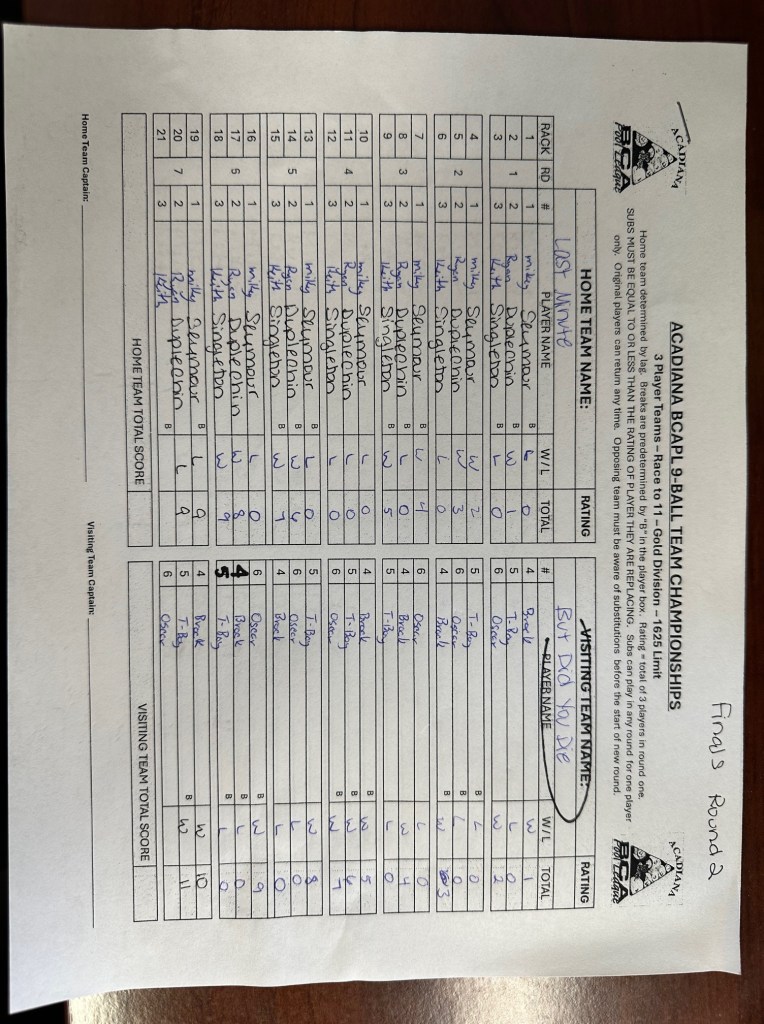 Finals Round 2
ACADIANA
BCA
Pool League
ACADIANA
BCA
Pool League
ACADIANA BCAPL 9-BALL TEAM CHAMPIONSHIPS
3 Player Teams – Race to 11 – Gold Division – 1625 Limit
Home team determined by lag. Breaks are predetermined by "B" in the player box. Rating = total of 3 players in round one.
SUBS MUST BE EQUAL TO OR LESS THAN THE RATING OF PLAYER THEY ARE REPLACING. Subs can play in any round for one player
only. Original players can return any time. Opposing team must be aware of substitutions before the start of new round.
HOME TEAM NAME: RATING VISITING TEAM NAME: RATING
Last Minute But Did You Die
RACK RD # PLAYER NAME W/L TOTAL # PLAYER NAME W/L TOTAL
1 1 mikey Seymour B L 0 4 Brock W 1
2 1 2 Ryan Duplechin B W 1 5 T-Boy L 0
3 3 Keith Singleton B L 0 6 Oscar W 2
4 1 mikey Seymour W 2 5 T-Boy B L 0
5 2 2 Ryan Duplechin W 3 6 Oscar B L 0
6 3 Keith Singleton L 0 4 Brock B W 3
7 1 mikey Seymour B W 4 6 Oscar L 0
8 3 2 Ryan Duplechin B L 0 4 Brock W 4
9 3 Keith Singleton B W 5 5 T-Boy L 0
10 1 mikey Seymour L 0 4 Brock B W 5
11 4 2 Ryan Duplechin L 0 5 T-Boy B W 6
12 3 Keith Singleton L 0 6 Oscar B W 7
13 1 mikey Seymour B L 0 5 T-Boy W 8
14 5 2 Ryan Duplechin B W 6 6 Oscar L 0
15 3 Keith Singleton B W 7 4 Brock L 0
16 1 mikey Seymour L 0 6 Oscar B W 9
17 6 2 Ryan Duplechin W 8 4 Brock B L 0
18 3 Keith Singleton W 9 5 T-Boy B L 0
19 1 mikey Seymour B L 9 4 Brock W 10
20 7 2 Ryan Duplechin B L 9 5 T-Boy W 11
21 3 Keith B 6 Oscar B
HOME TEAM TOTAL SCORE VISITING TEAM TOTAL SCORE
Home Team Captain: Visiting Team Captain: